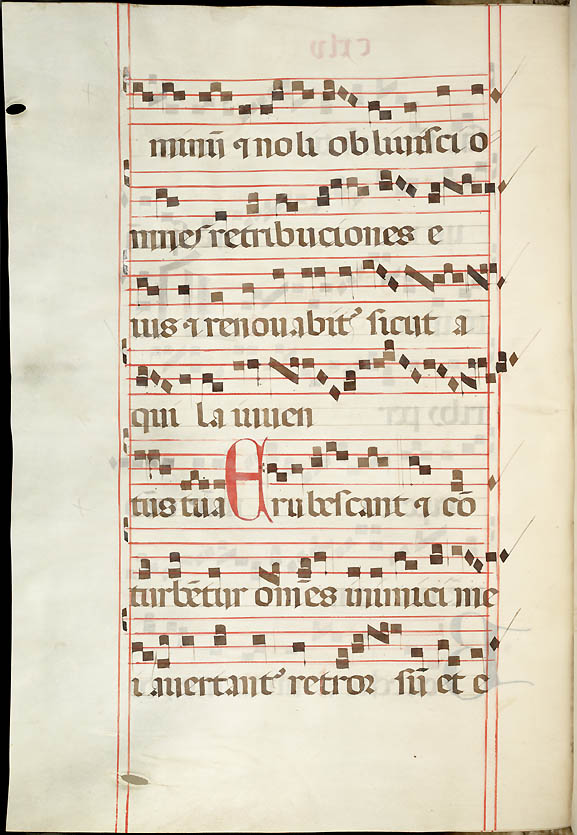 minū ⁊ noli obliuisci o
mnes retribuciones e
ius ⁊ renouabit᷑ sicut a
qui la iuuen
tus tua Erubescant ⁊ cō
turbētur om̄es inimici me
i auertant᷑ retror sū et e